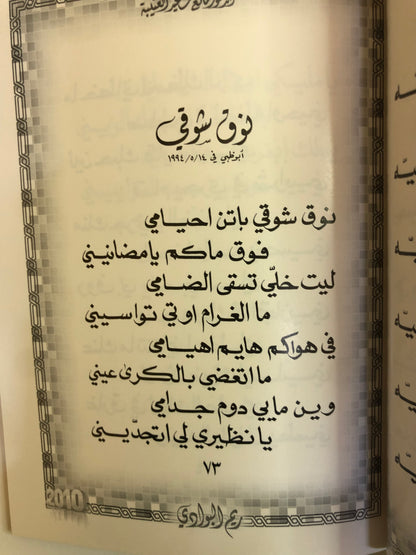 نوق شوقي
أبوظبي في ١٤/٥/١٩٩٤
نوق شوقي باتن احيامي
فوق ماكم يامضانيني
ليت خلّي تسقى الضامي
ما الغرام اوتي تواسيني
في هواكم هايم اهيامي
ما اتغضي بالكرى عيني
وين مابي دوم جدامي
يانظيري لي اتجدّيني
٧٣
2010
ريم البوادي